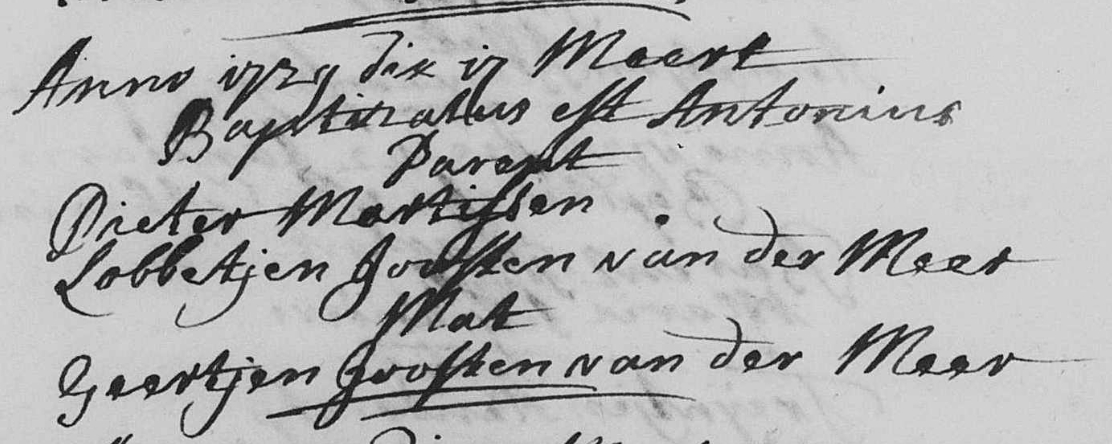 Anno 1729 die 17 Meert
Baptizatus est Antonius
Parent
Pieter Martissen
Lobbetjen Joosten van der Meer
Mat
Geertjen Joosten van der Meer